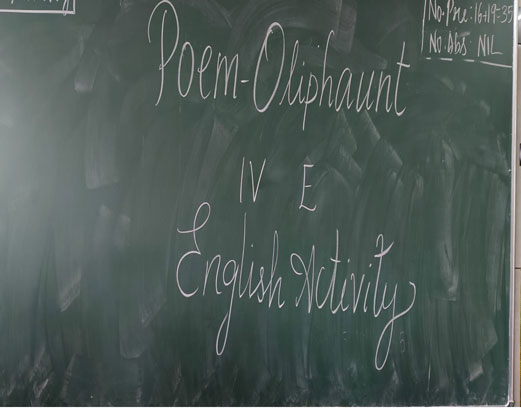 No. Pre: 16+19=35
No. Abs: NIL
Poem-Oliphaunt
IV E
English Activity